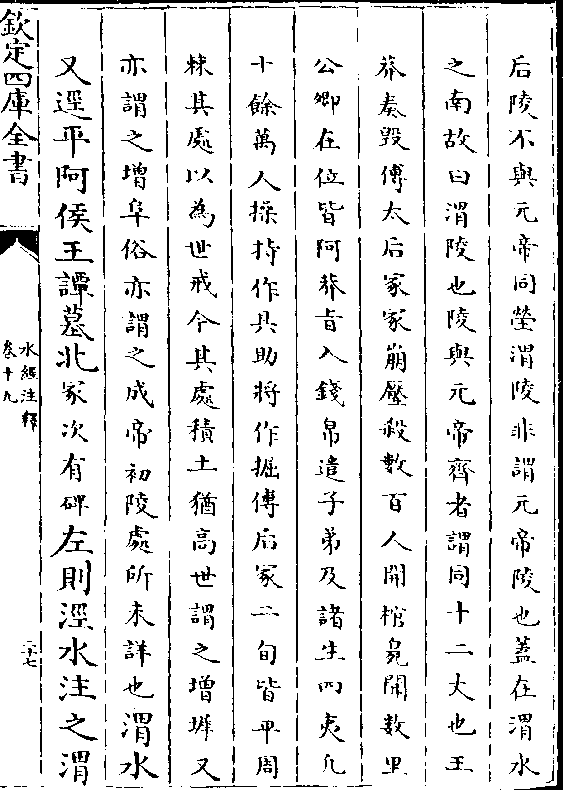 后陵不與元帝同塋渭陵非謂元帝陵也蓋在渭水
之南故曰渭陵也陵與元帝齊者謂同十二丈也王
莽奏毀傅太后冢冢崩壓殺數百人開棺臭聞數里
公卿在位皆阿莽旨入錢帛遣子弟及諸生四夷凡
十餘萬人操持作具助將作掘傅后冢二旬皆平周
棘其處以為世戒今其處積土猶高世謂之增墀又
亦謂之增阜俗亦謂之成帝初陵處所未詳也渭水
又逕平阿侯王譚墓北冢次有碑左則涇水注之渭
欽定四庫全書
水經注釋
卷十九
二十七